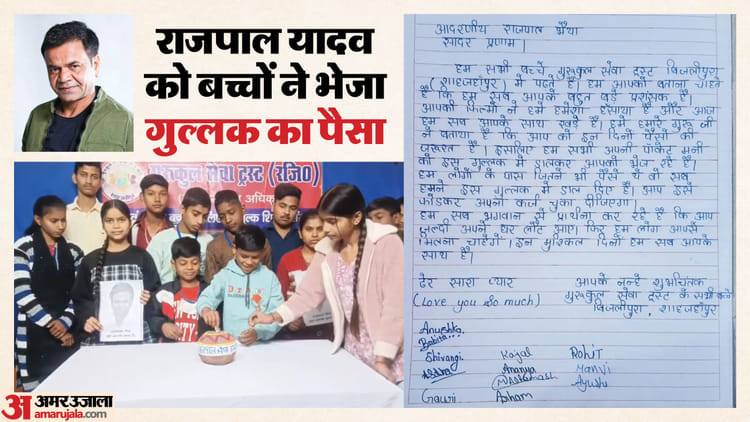 राजपाल यादव
को बच्चों ने भेजा
गुल्लक का पैसा
गुरुकुल सेवा ट्रस्ट (रजि०)
अमर उजाला
amarujala.com
आदरणीय राजपाल भैया
सादर प्रणाम।
हम सभी बच्चे गुरुकुल सेवा ट्रस्ट बिजलीपुरा
(शाहजहाँपुर) में पढ़ते हैं। हम आपको बताना चाहते
हैं कि हम सब आपके बहुत बड़े प्रशंसक हैं।
आपकी फिल्मों ने हमें हमेशा हंसाया है और आज
हम सब आपके साथ खड़े हैं। हमें हमारे गुरु जी
ने बताया है कि आप को इन दिनों पैसों की
जरूरत है। इसलिए हम सभी अपनी पॉकेट मनी
को इस गुल्लक में डालकर आपको भेज रहे हैं।
हम लोगों के पास जितने भी पैसे थे वो सब
हमने इस गुल्लक में डाल दिए हैं। आप इसे
फोडकर अपना कर्जा चुका दीजिएगा।
हम सब भगवान से प्रार्थना कर रहे हैं कि आप
जल्दी अपने घर लौट आएं। फिर हम लोग आपसे
मिलना चाहेंगे। इन मुश्किल दिनों हम सब आपके
साथ हैं।
ढेर सारा प्यार
(Love you so much)
आपके नन्हे शुभचिंतक
गुरुकुल सेवा ट्रस्ट के सभी बच्चे
बिजलीपुरा, शाहजहाँपुर
Anushka
Shivangi Kajal Rohit
Ananya
Ayushi
Gauri